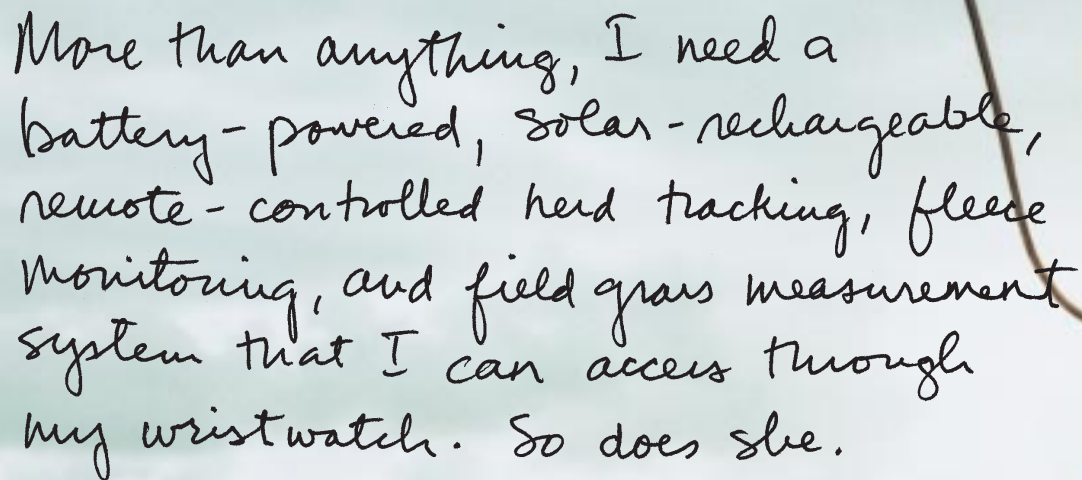 More than anything, I need a
battery-powered, solar-rechargeable,
remote-controlled herd tracking, fleece
monitoring, and field grass measurement
system that I can access through
my wristwatch. So does she.